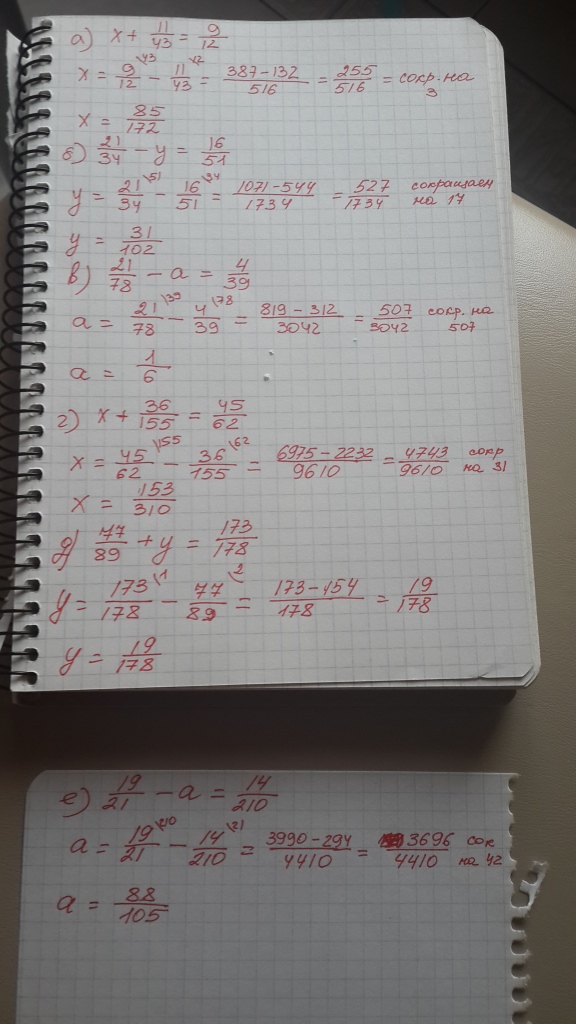 а) x + 11/43 = 9/12
x = 9/12 \43 − 11/43 \12 = 387−132/516 = 255/516 = сокр. на 3
x = 85/172
б) 21/34 − y = 16/51
y = 21/34 \51 − 16/51 \34 = 1071−544/1734 = 527/1734 сокращаем на 17
y = 31/102
в) 21/78 − a = 4/39
a = 21/78 \39 − 4/39 \78 = 819 − 312/3042 = 507/3042 сокр. на 507
a = 1/6
г) x + 36/155 = 45/62
x = 45/62 \155 − 36/155 \62 = 6975−2232/9610 = 4743/9610 сокр на 31
x = 153/310
д) 77/89 + y = 173/178
y = 173/178 \1 − 77/89 \2 = 173−154/178 = 19/178
y = 19/178
е) 19/21 − a = 14/210
a = 19/21 \210 − 14/210 \21 = 3990−294/4410 = 3696/4410 сок на 42
a = 88/105